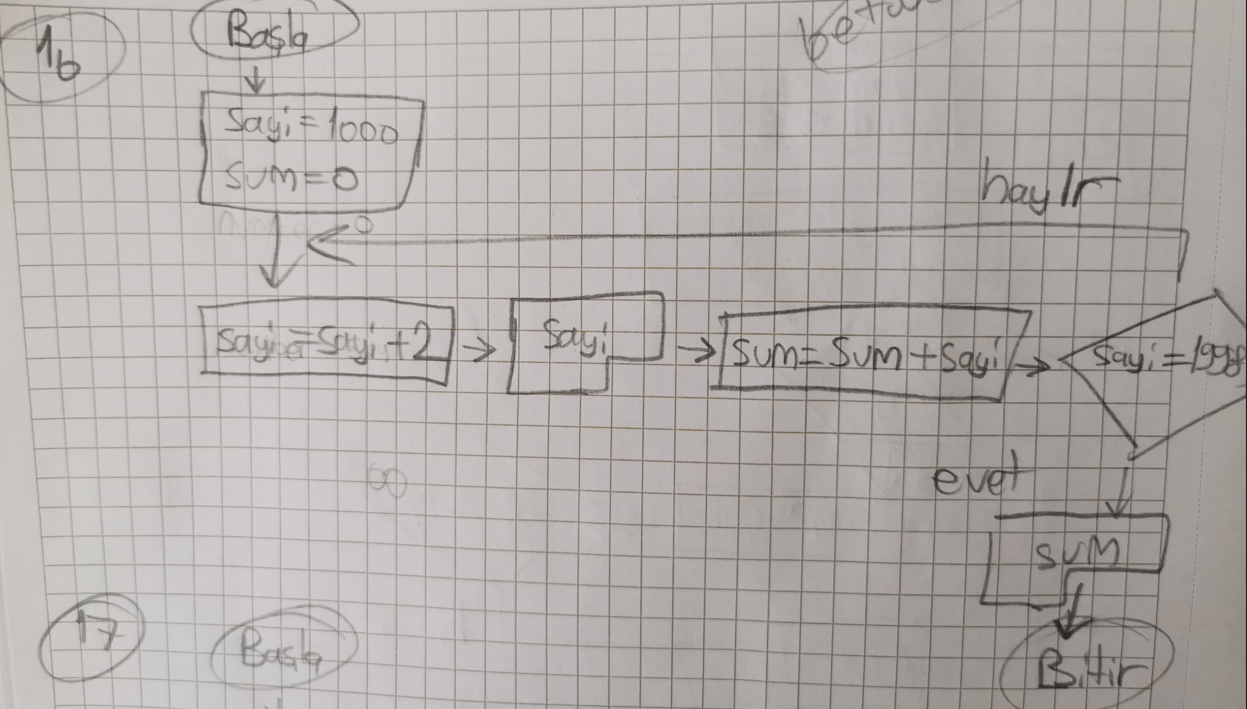 16
Başla
Sayi=1000
Sum=0
hayIr
Sayi=Sayi+2
Sayi
Sum=Sum+Sayi
Sayi=1998
evet
SUM
Bitir
17
Başla